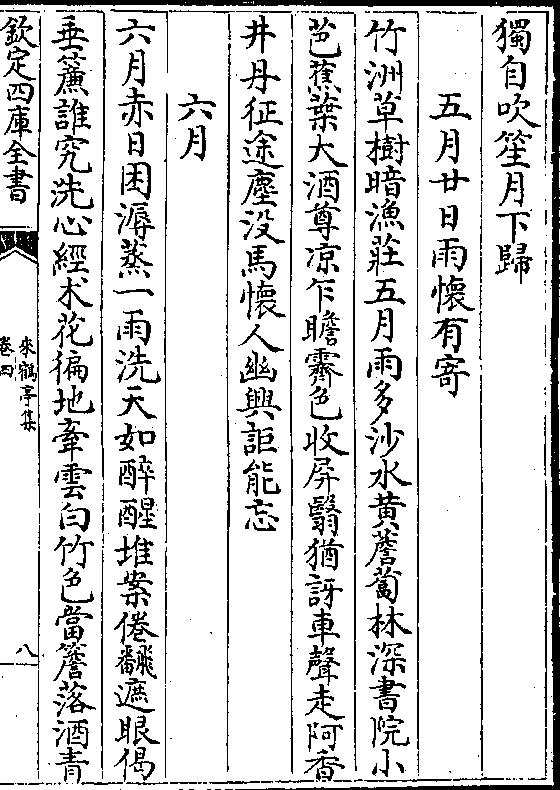 獨自吹笙月下歸
五月廿日雨懷有寄
竹洲草樹暗漁莊五月雨多沙水黃薝蔔林深書院小
芭蕉葉大酒尊凉乍瞻霽色收屏翳猶訝車聲走阿香
井丹征途塵没馬懷人幽興詎能忘
六月
六月赤日困溽蒸一雨洗天如醉醒堆案倦飜遮眼偈
垂簾誰究洗心經术花徧地牽雲白竹色當簷落酒青
欽定四庫全書
來鶴亭集
卷四
八